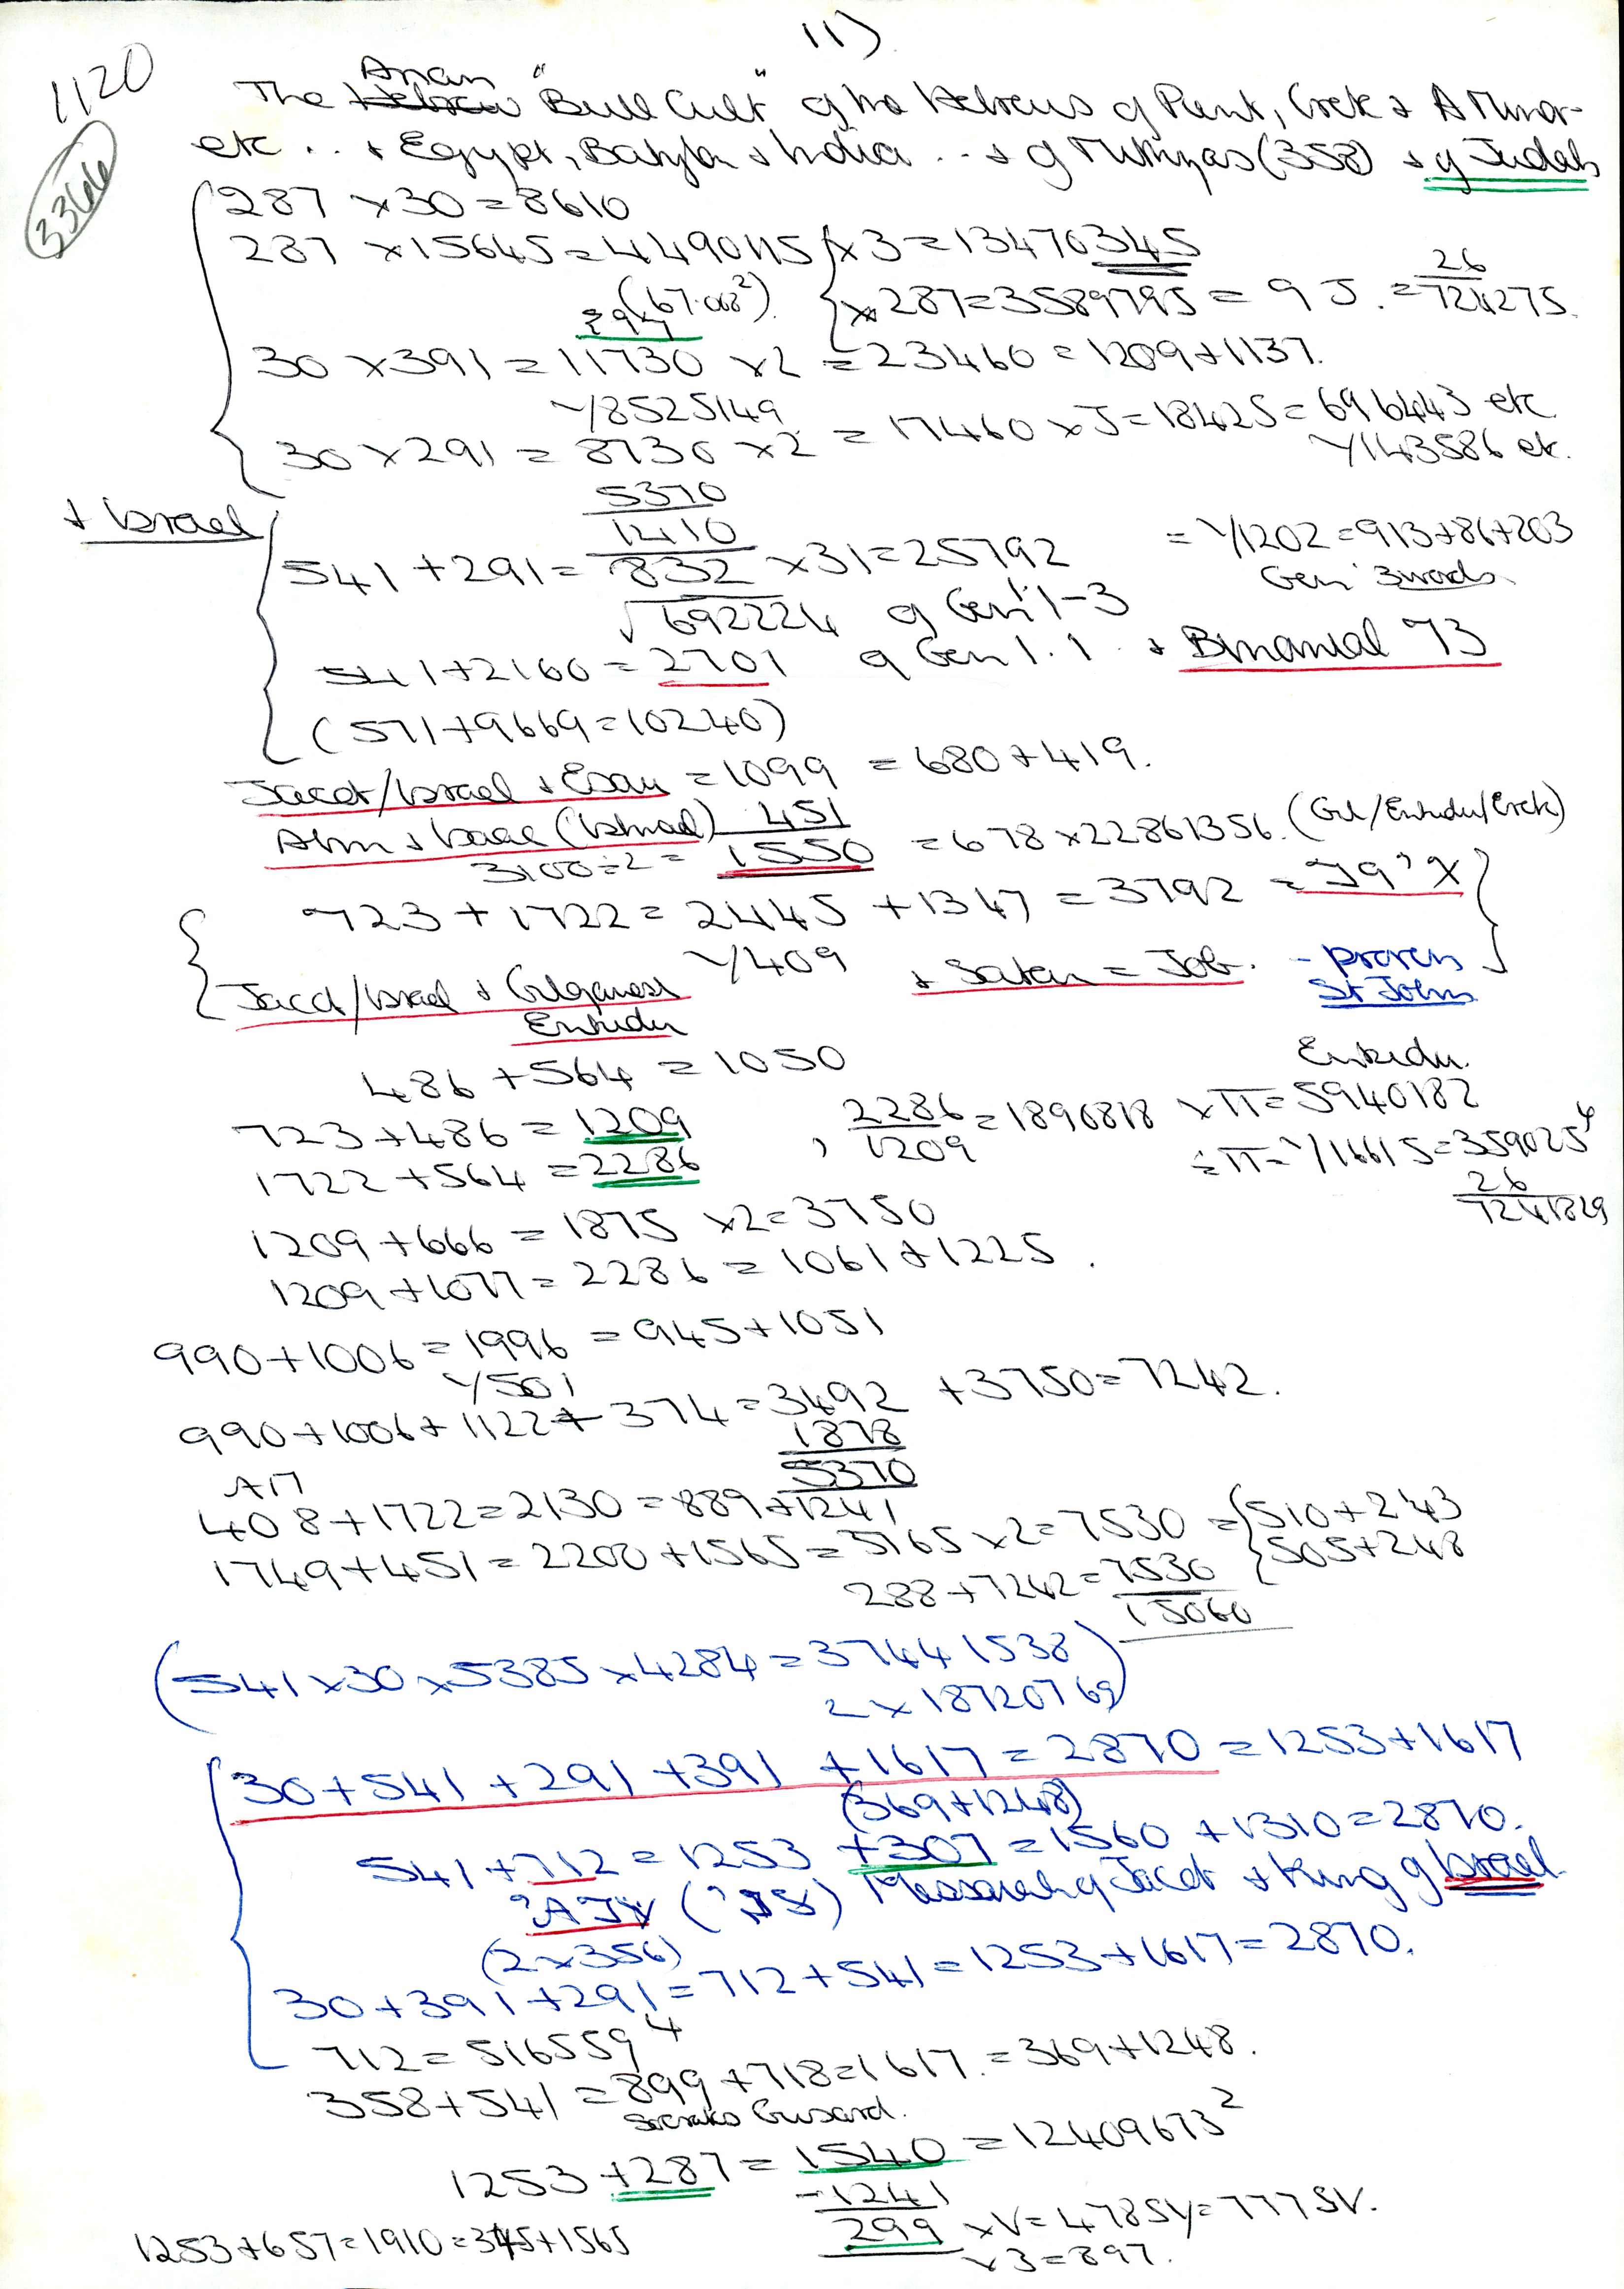 11)
1120
3366
The Arian "Bull Cult" of the Hebrews of Punt, Crete + A Minor
etc .. + Egypt, Babylon + India .. + of (358) + of Judah
287 × 30 = 8610
287 × 15645 = 4490115 × 3 = 13470345
(67.008²) × 287 = 3589795 = 9 J. = 26/724275
30 × 391 = 11730 × 2 = 23460 = 1209 + 1137.
√8525149
30 × 291 = 8730 × 2 = 17460 × J = 18425 = 696443 etc
√143586 etc.
5370
+ Israel
1410
541 + 291 = 832 × 31 = 25792 = √1202 = 913 + 86 + 203
√692224 of Gen 1:1-3 Gen 3 words
541 + 2160 = 2701 of Gen 1.1 + 73
(571 + 9669 = 10240)
Jacob/Israel + Esau = 1099 = 680 + 419.
Abm + Isaac (Ishmael) 451
3100 ÷ 2 = 1550 = 678 × 22861356. (Gil/Enkidu/Erek)
723 + 1722 = 2445 + 1347 = 3792 =
√409
Jacob/Israel + Gilgamesh + Satan = Job. - proven
Enkidu St John
486 + 564 = 1050 Enkidu.
723 + 486 = 1209 , 2286/1209 = 1890818 × π = 5940182
1722 + 564 = 2286 ÷ π = √16615 = 359025⁴
26/7241829
1209 + 666 = 1875 × 2 = 3750
1209 + 1077 = 2286 = 1061 + 1225.
990 + 1006 = 1996 = 945 + 1051
√501
990 + 1006 + 1122 + 374 = 3492 + 3750 = 7242.
1878
5370
408 + 1722 = 2130 = 889 + 1241
1749 + 451 = 2200 + 1565 = 3765 × 2 = 7530 = {510 + 243
505 + 248
288 + 7242 = 7530
15060
(541 × 30 × 5385 × 4284 = 37441538)
2 × 18720769
30 + 541 + 291 + 391 + 1617 = 2870 = 1253 + 1617
(369 + 1248)
541 + 712 = 1253 + 307 = 1560 + 1310 = 2870.
Messiah of Jacob + King of Israel
(2 × 356)
30 + 391 + 291 = 712 + 541 = 1253 + 1617 = 2870.
712 = 516559⁴
358 + 541 = 899 + 718 = 1617. = 369 + 1248.
1253 + 287 = 1540 = 12409673²
-1241
299 × V = 4785 = 7775V.
× 3 = 897.
1253 + 657 = 1910 = 345 + 1565